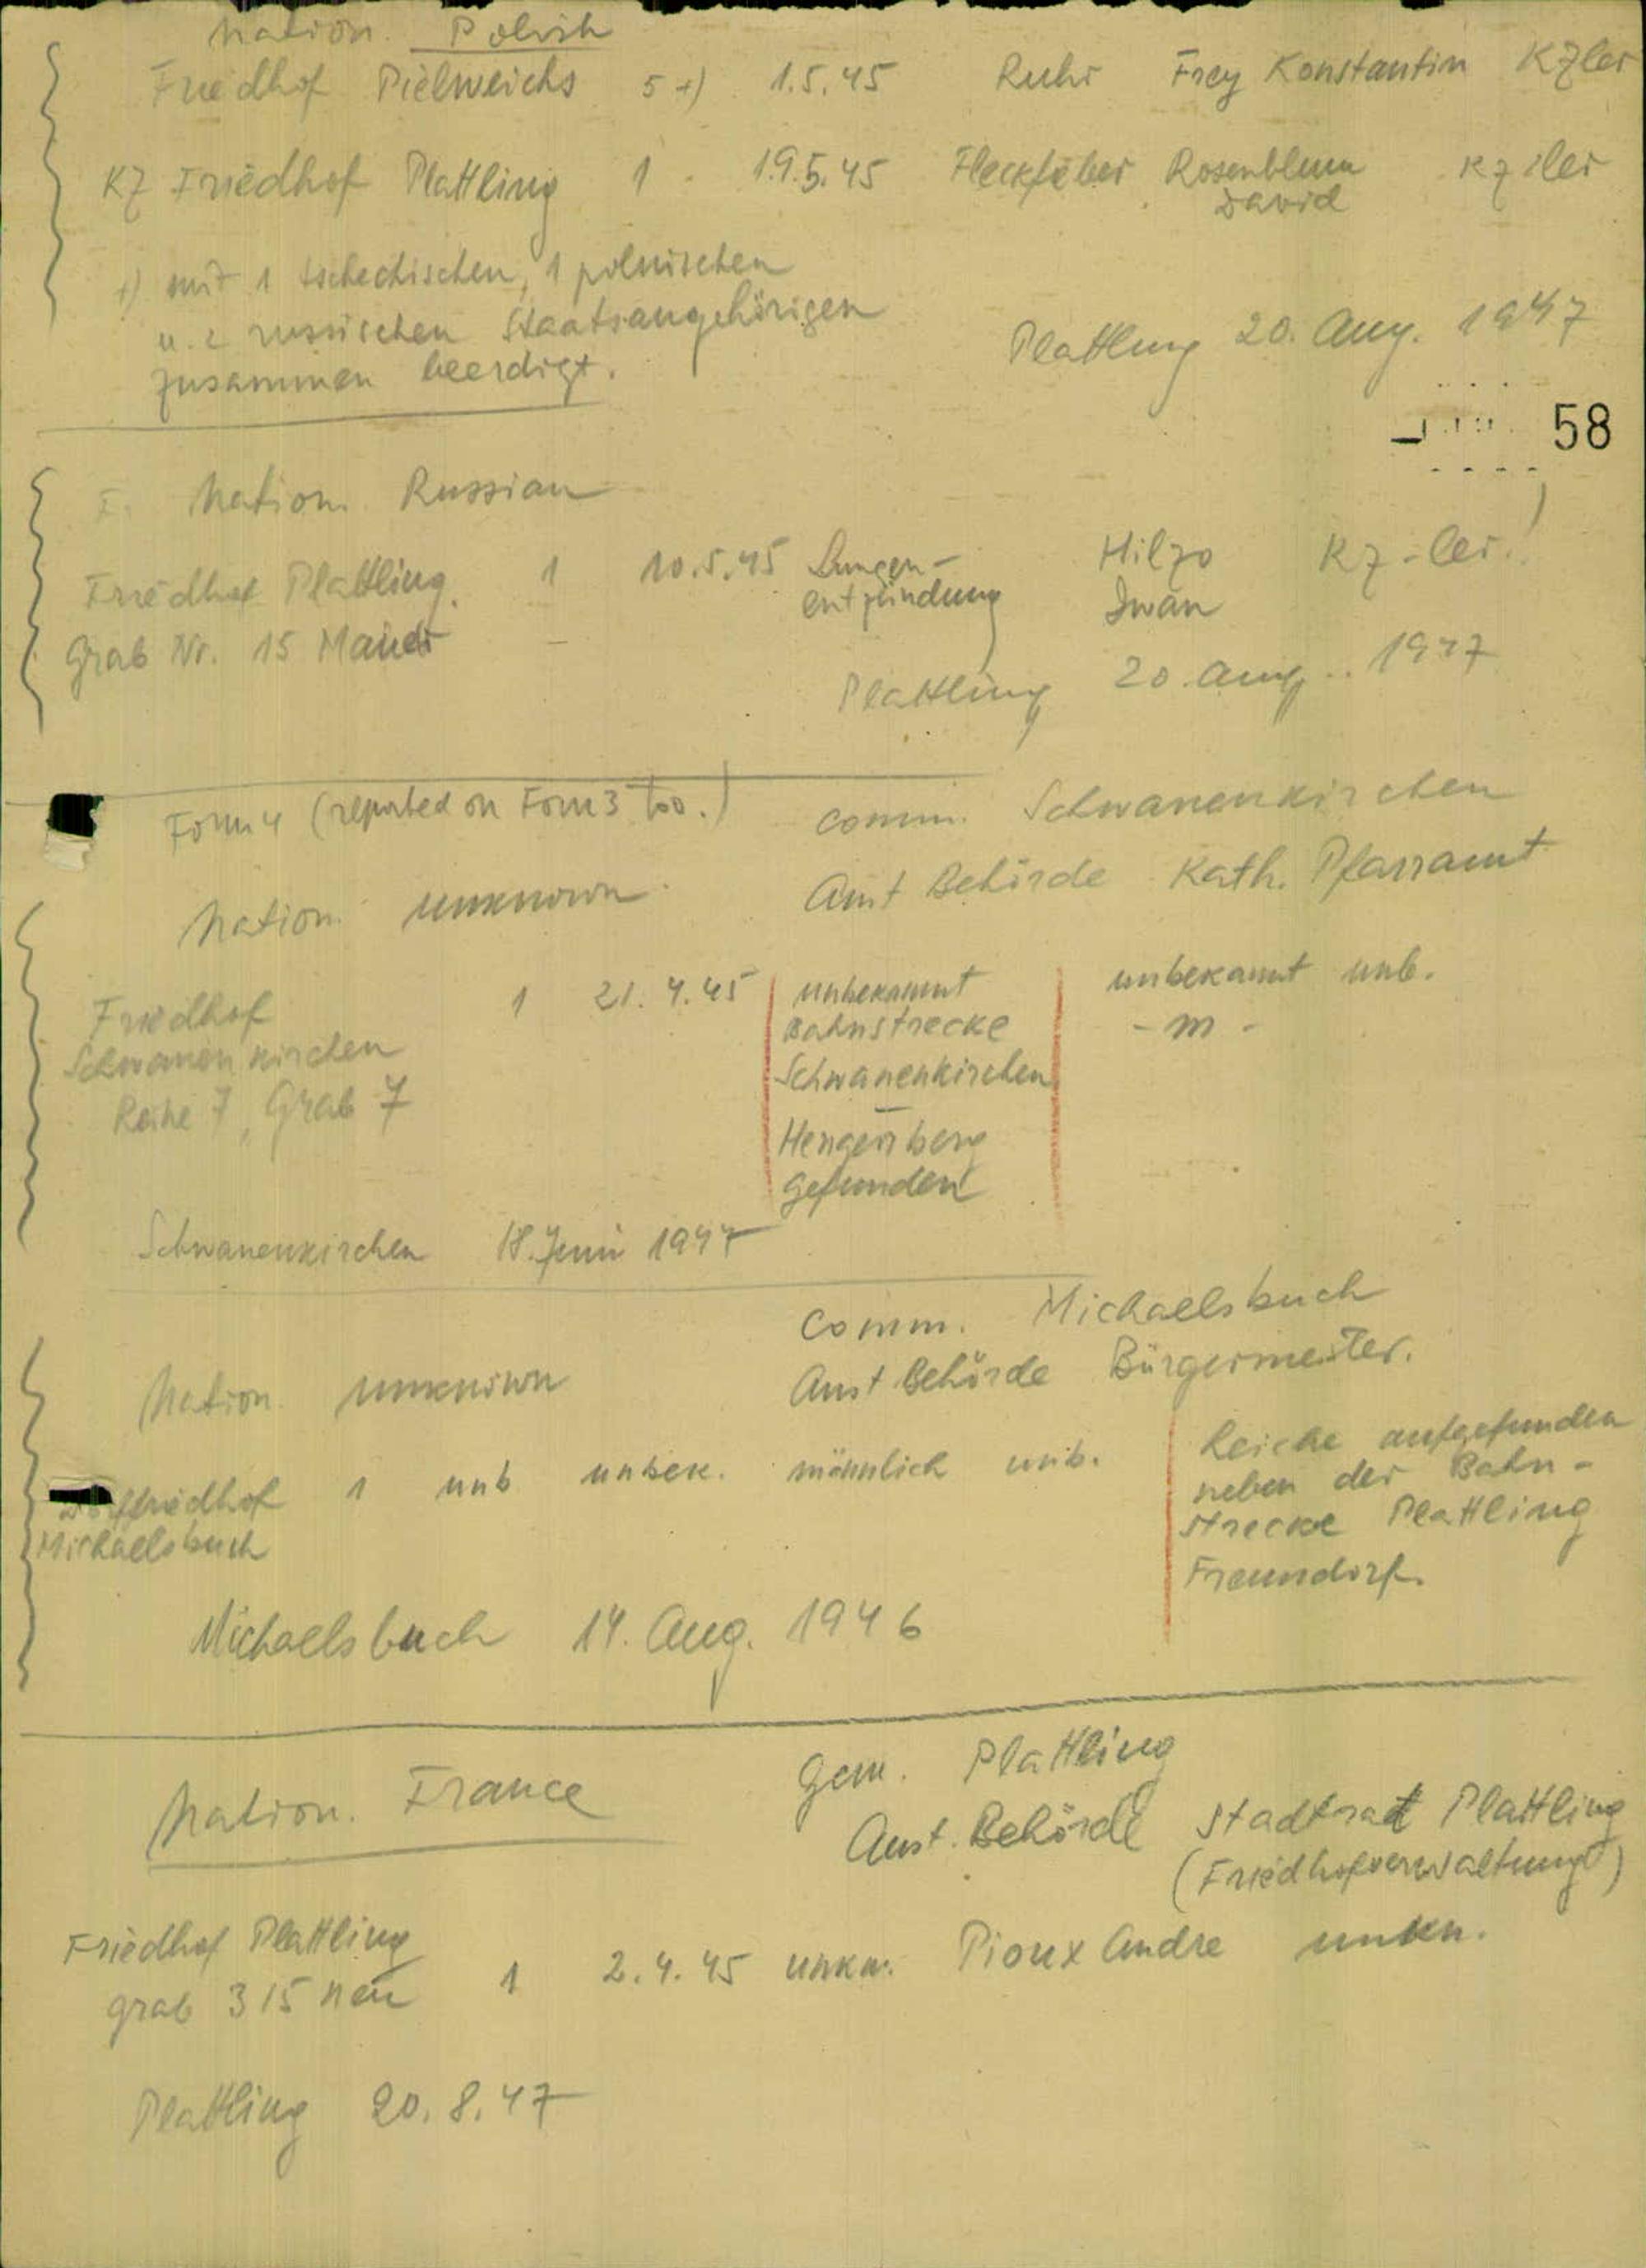 Nation. Polish
Friedhof Pielweichs 5 +) 1.5.45 Ruhr Frey Konstantin KZler
KZ Friedhof Plattling 1 - 19.5.45 Fleckfieber Rosenblum David KZiler
+) mit 1 tschechischen, 1 polnischen
u. 2 russischen Staatsangehörigen
zusammen beerdigt.
Plattling 20. Aug. 1947
58
F. Nation. Russian
Friedhof Plattling. 1 10.5.45 Lungen- Hilzo KZ-ler!
entzündung Iwan
Grab Nr. 15 Mauer -
Plattling 20. Aug. 1947
Form 4 (reported on Form 3 too.) comm. Schwanenkirchen
Amt Behörde Kath. Pfarramt
Nation. unknown
Friedhof 1 21.4.45 unbekannt unbekannt unb.
Schwanenkirchen Bahnstrecke - m -
Reihe 7, Grab 7 Schwanenkirchen
-
Hengersberg
gefunden
Schwanenkirchen 18. Juni 1947
Comm. Michaelsbuch
Nation. unknown Aust Behörde Bürgermeister.
Dorffriedhof 1 unb unbek. männlich unb. Leiche aufgefunden
Michaelsbuch neben der Bahn-
strecke Plattling
Freundorf.
Michaelsbuch 14. Aug. 1946
Nation. France Gem. Plattling
Aust. Behörde Stadtrat Plattling
(Friedhofverwaltung)
Friedhof Plattling
Grab 315 neu 1 2.4.45 unkn. Pioux Andre unkn.
Plattling 20.8.47